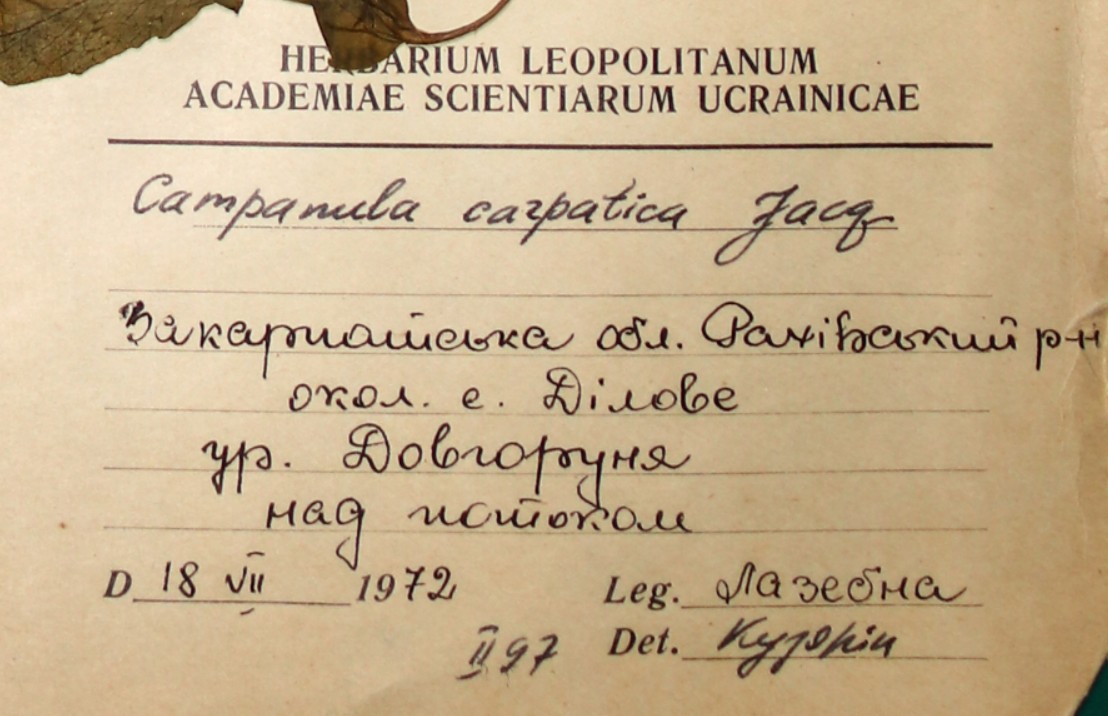 HERBARIUM LEOPOLITANUM
ACADEMIAE SCIENTIARUM UCRAINICAE
Campanula carpatica Jacq
Закарпатська обл. Рахівський р-н
окол. с. Ділове
ур. Довгоруня
над потоком
D 18 VII 1972 Leg. Лазебна
II 97 Det. Кузярін